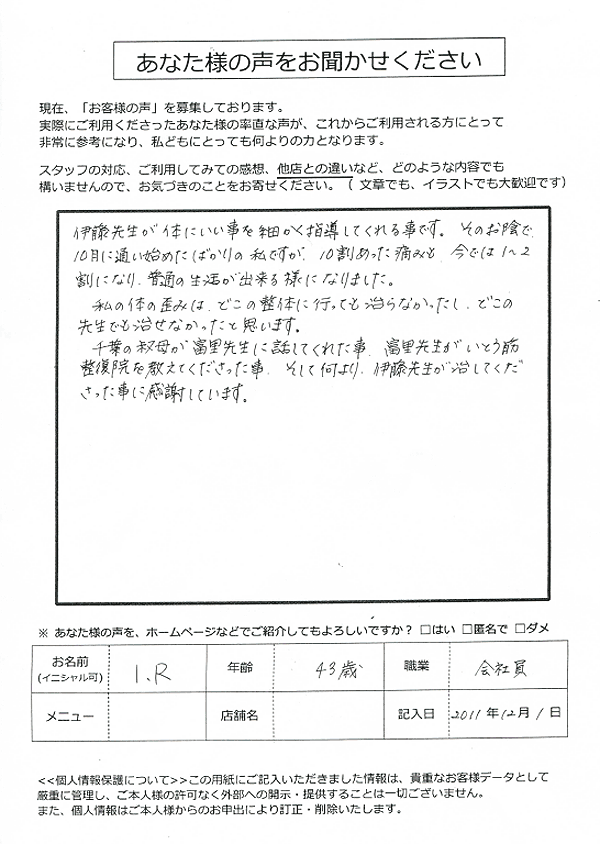 あなた様の声をお聞かせください
現在、「お客様の声」を募集しております。
実際にご利用くださったあなた様の率直な声が、これからご利用される方にとって
非常に参考になり、私どもにとっても何よりの力となります。
スタッフの対応、ご利用してみての感想、他店との違いなど、どのような内容でも
構いませんので、お気づきのことをお寄せください。（ 文章でも、イラストでも大歓迎です）
伊藤先生が体にいい事を細かく指導してくれる事です。そのお陰で、
10月に通い始めたばかりの私ですが、10割あった痛みも、今では1～2
割になり、普通の生活が出来る様になりました。
私の体の歪みは、どこの整体に行っても治らなかったし、どこの
先生でも治せなかったと思います。
千葉の叔母が富里先生に話してくれた事、富里先生がいとう筋
整復院を教えてくださった事、そして何より、伊藤先生が治してくだ
さった事に感謝しています。
※ あなた様の声を、ホームページなどでご紹介してもよろしいですか？ □はい □匿名で □ダメ
お名前 (イニシャル可) I.R 年齢 43歳 職業 会社員
メニュー 店舗名 記入日 2011年12月1日
<<個人情報保護について>>この用紙にご記入いただきました情報は、貴重なお客様データとして
厳重に管理し、ご本人様の許可なく外部への開示・提供することは一切ございません。
また、個人情報はご本人様からのお申出により訂正・削除いたします。